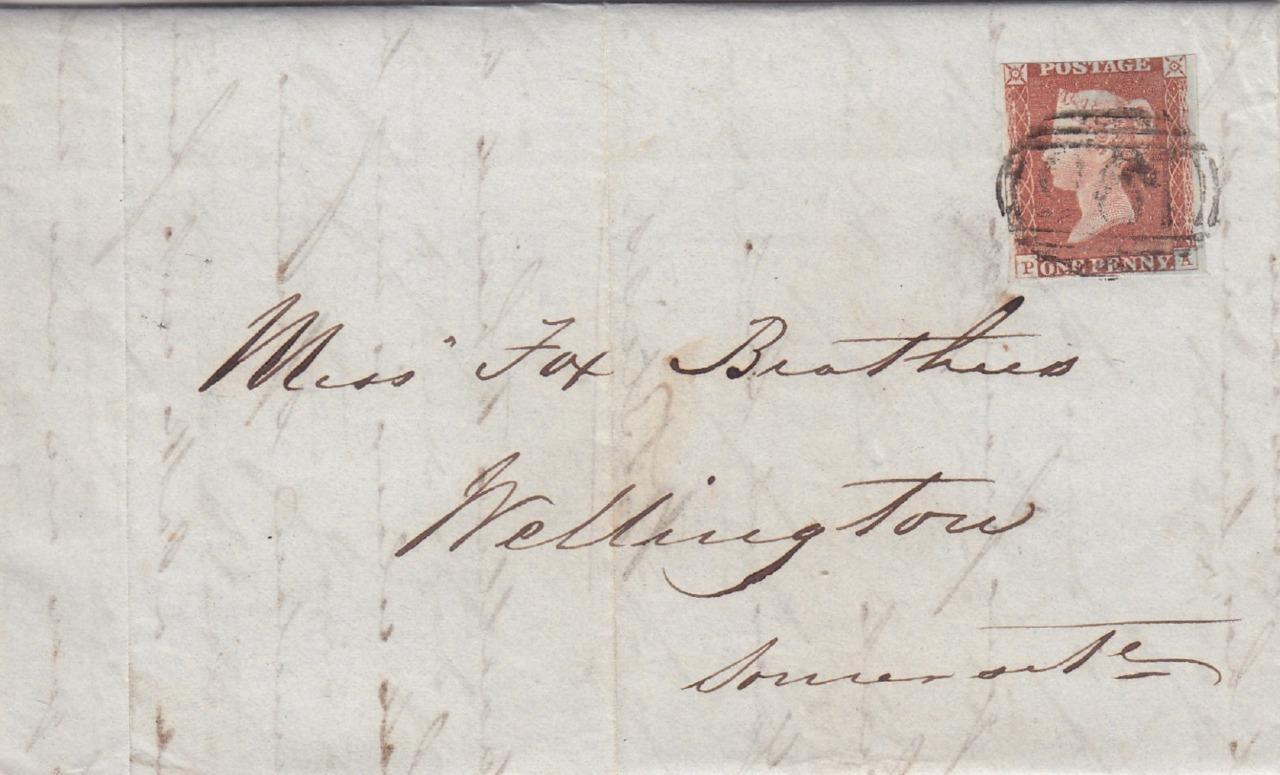 POSTAGE
P ONE PENNY A
Mess Fox Brothers
Wellington
Somersete